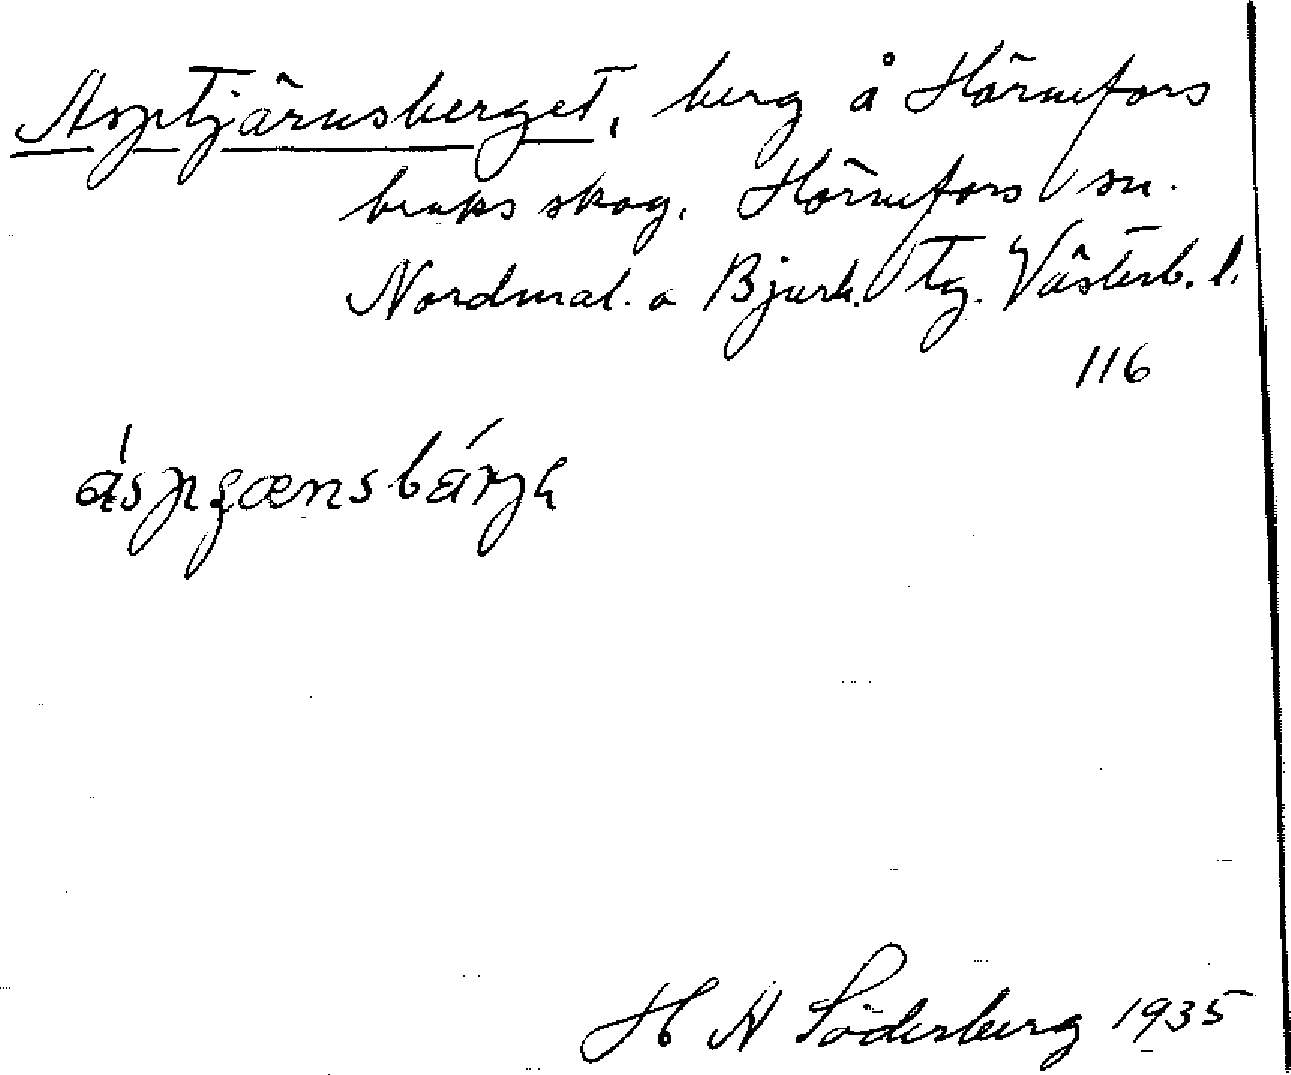 Asptjärnsberget, berg å Hörnefors
bruks skog, Hörnefors sn.
Nordmal. o Bjurh. Tg. Västerb. l.
116
H A Söderberg 1935